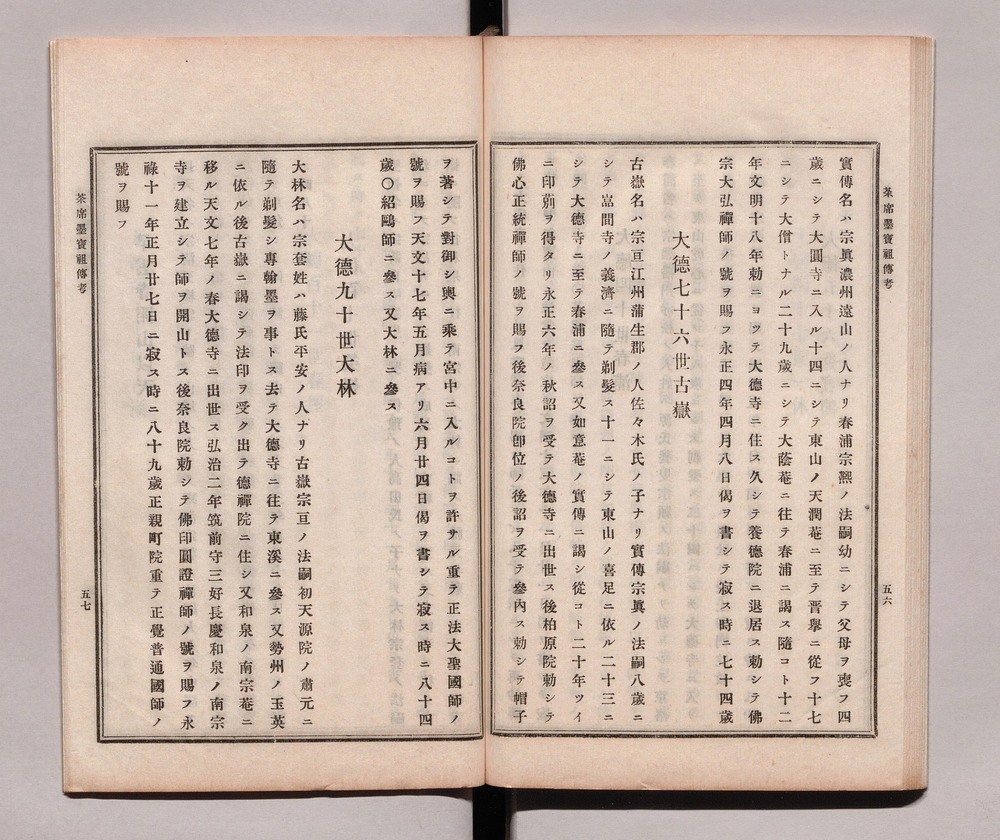 茶席墨寶祖傳考
五六
實傳名ハ宗眞濃州遠山ノ人ナリ春浦宗凞ノ法嗣幼ニシテ父母ヲ喪フ四
歲ニシテ大圓寺ニ入ル十四ニシテ東山ノ天潤菴ニ至テ晋擧ニ從フ十七
ニシテ大僧トナル二十九歲ニシテ大蔭菴ニ往テ春浦ニ謁ス隨コト十二
年文明十八年勅ニヨツテ大德寺ニ住ス久シテ養德院ニ退居ス勅シテ佛
宗大弘禪師ノ號ヲ賜フ永正四年四月八日偈ヲ書シテ寂ス時ニ七十四歲
大德七十六世古嶽
古嶽名ハ宗亘江州蒲生郡ノ人佐々木氏ノ子ナリ實傳宗眞ノ法嗣八歲ニ
シテ嵓間寺ノ義濟ニ隨テ剃髮ス十一ニシテ東山ノ喜足ニ依ル二十三ニ
シテ大德寺ニ至テ春浦ニ參ス又如意菴ノ實傳ニ謁シ從コト二十年ツイ
ニ印莂ヲ得タリ永正六年ノ秋詔ヲ受テ大德寺ニ出世ス後柏原院勅シテ
佛心正統禪師ノ號ヲ賜フ後奈良院卽位ノ後詔ヲ受テ參內ス勅シテ帽子
ヲ著シテ對御シ輿ニ乘テ宮中ニ入ルコトヲ許サル重テ正法大聖國師ノ
號ヲ賜フ天文十七年五月病アリ六月廿四日偈ヲ書シテ寂ス時ニ八十四
歲〇紹鷗師ニ參ス又大林ニ參ス
大德九十世大林
大林名ハ宗套姓ハ藤氏平安ノ人ナリ古嶽宗亘ノ法嗣初天源院ノ肅元ニ
隨テ剃髮シ專翰墨ヲ事トス去テ大德寺ニ往テ東溪ニ參ス又勢州ノ玉英
ニ依ル後古嶽ニ謁シテ法印ヲ受ク出テ德禪院ニ住シ又和泉ノ南宗菴ニ
移ル天文七年ノ春大德寺ニ出世ス弘治二年筑前守三好長慶和泉ノ南宗
寺ヲ建立シテ師ヲ開山トス後奈良院勅シテ佛印圓證禪師ノ號ヲ賜フ永
祿十一年正月廿七日ニ寂ス時ニ八十九歲正親町院重テ正覺普通國師ノ
號ヲ賜フ
茶席墨寶祖傳考
五七